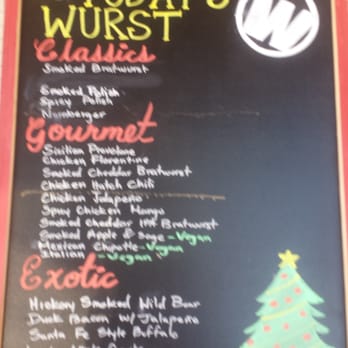 TODAY'S
WURST
W
Classics
Smoked Bratwurst
Smoked Polish
Spicy Polish
Nurnberger
Gourmet
Sicilian Provolone
Chicken Florentine
Smoked Cheddar Bratwurst
Chicken Hatch Chili
Chicken Jalapeño
Spicy Chicken Mango
Smoked Cheddar IPA Bratwurst
Smoked Apple & Sage -Vegan
Mexican Chipotle -Vegan
Italian -Vegan
Exotic
Hickory Smoked Wild Boar
Duck Bacon w/ Jalapeno
Santa Fe Style Buffalo